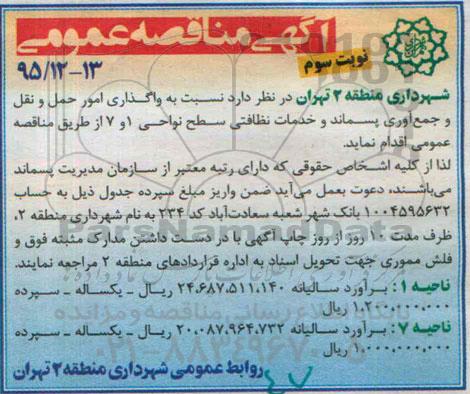 آگهی مناقصه عمومی
نوبت سوم
۹۵/۱۲-۱۳
شهرداری منطقه ۲ تهران در نظر دارد نسبت به واگذاری امور حمل و نقل
و جمع‌آوری پسماند و خدمات نظافتی سطح نواحی ۱ و ۷ از طریق مناقصه
عمومی اقدام نماید.
لذا از کلیه اشخاص حقوقی که دارای رتبه معتبر از سازمان مدیریت پسماند
می‌باشند، دعوت بعمل می‌آید ضمن واریز مبلغ سپرده جدول ذیل به حساب
۱۰۰۴۵۹۵۶۳۲ بانک شهر شعبه سعادت‌آباد کد ۲۳۴ به نام شهرداری منطقه ۲،
ظرف مدت ۱۰ روز از روز چاپ آگهی با در دست داشتن مدارک مثبته فوق و
فلش مموری جهت تحویل اسناد به اداره قراردادهای منطقه ۲ مراجعه نمایند.
ناحیه ۱: برآورد سالیانه ۲۴.۶۸۷.۵۱۱.۱۴۰ ریال ـ یکساله ـ سپرده
۱.۲۰۰.۰۰۰.۰۰۰ ریال
ناحیه ۷: برآورد سالیانه ۲۰.۰۸۷.۹۶۴.۷۳۲ ریال ـ یکساله ـ سپرده
۱.۰۰۰.۰۰۰.۰۰۰ ریال
روابط عمومی شهرداری منطقه ۲ تهران
ParsNamadData
۰۲۱-۸۸۳۴۹۶۷۰